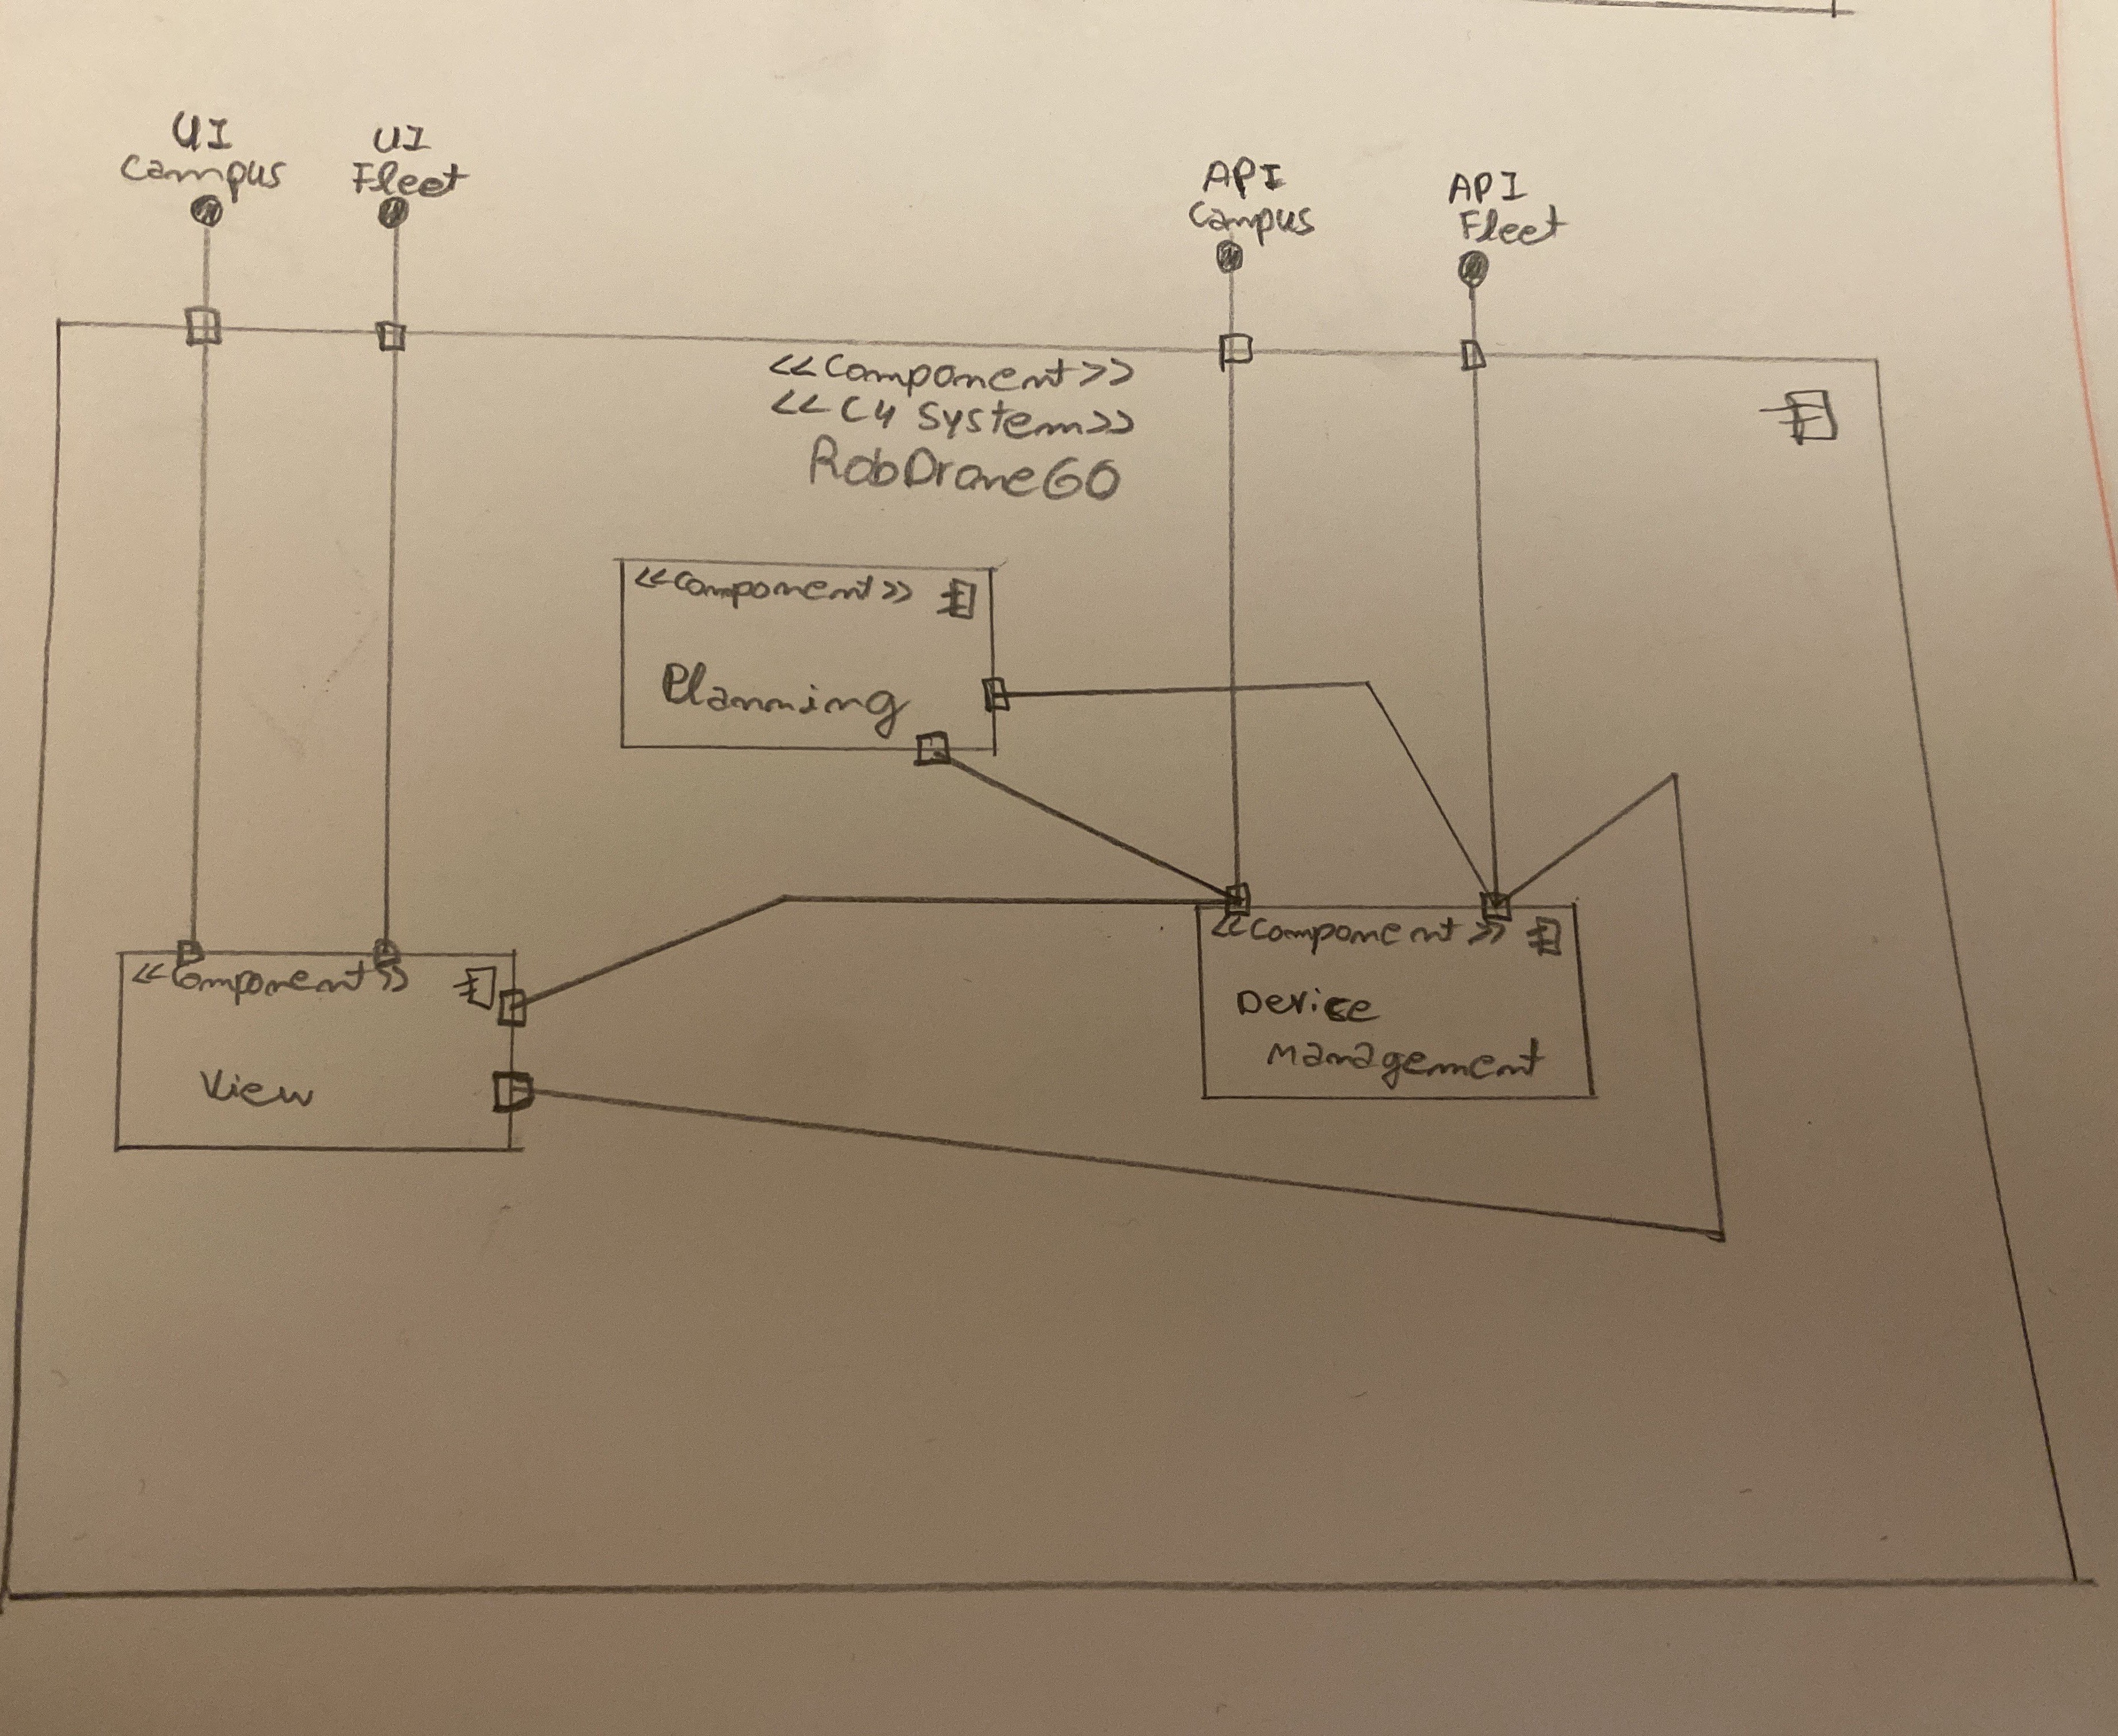 UI
Campus
UI
Fleet
API
Campus
API
Fleet
<<Component>>
<<C4 System>>
RobDroneGO
<<Component>>
Planning
<<Component>>
View
<<Component>>
Device
Management